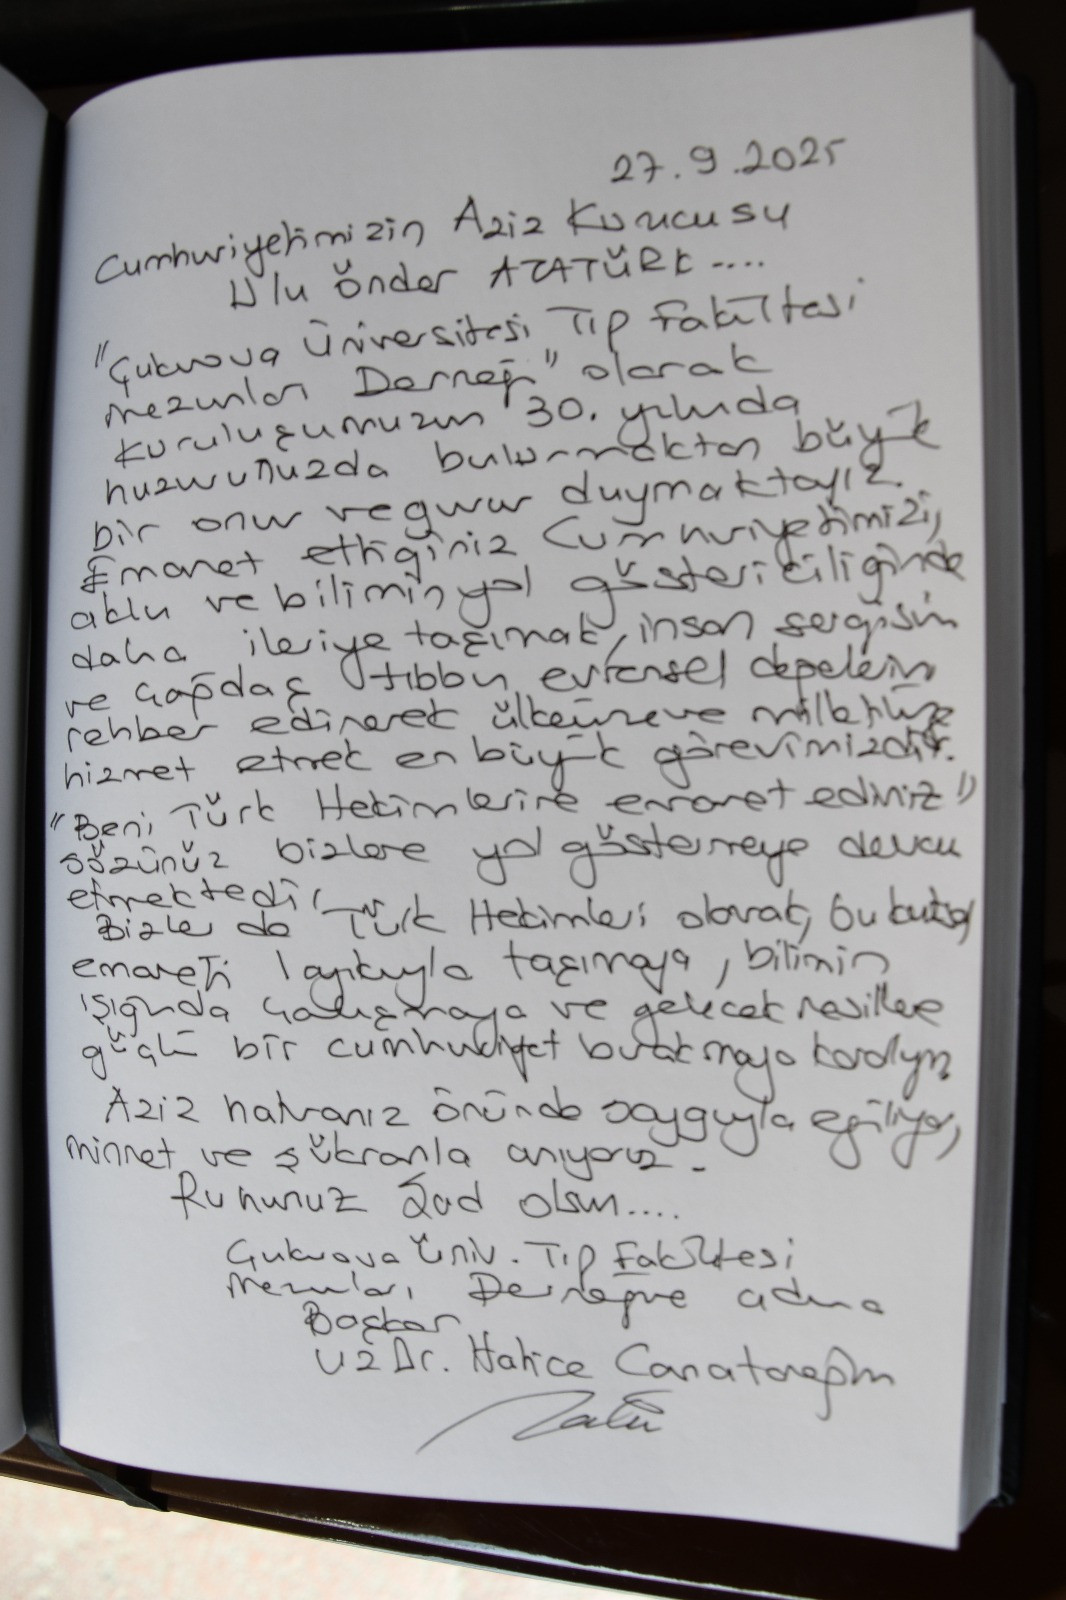 27.9.2025
Cumhuriyetimizin Aziz Kurucusu
Ulu Önder ATATÜRK....
"Çukurova Üniversitesi Tıp Fakültesi
Mezunları Derneği" olarak
kuruluşumuzun 30. yılında
huzurunuzda bulunmaktan büyük
bir onur ve gurur duymaktayız.
Emanet ettiğiniz Cumhuriyetimizi,
aklın ve bilimin yol göstericiliğinde
daha ileriye taşımak, insan sevgisini
ve çağdaş tıbbın evrensel değerlerini
rehber edinerek ülkemize ve milletimize
hizmet etmek en büyük görevimizdir.
"Beni Türk Hekimlerine emanet ediniz"
sözünüz bizlere yol göstermeye devam
etmektedir.
Bizler de Türk Hekimleri olarak, bu kutsal
emaneti layıkıyla taşımaya, bilimin
ışığında çalışmaya ve gelecek nesillere
güçlü bir cumhuriyet bırakmaya kararlıyız.
Aziz hatıranız önünde saygıyla eğiliyor,
minnet ve şükranla anıyoruz.
Ruhunuz Şad olsun....
Çukurova Üniv. Tıp Fakültesi
Mezunları Derneği adına
Başkan
Uz Dr. Hatice Canatoreğin